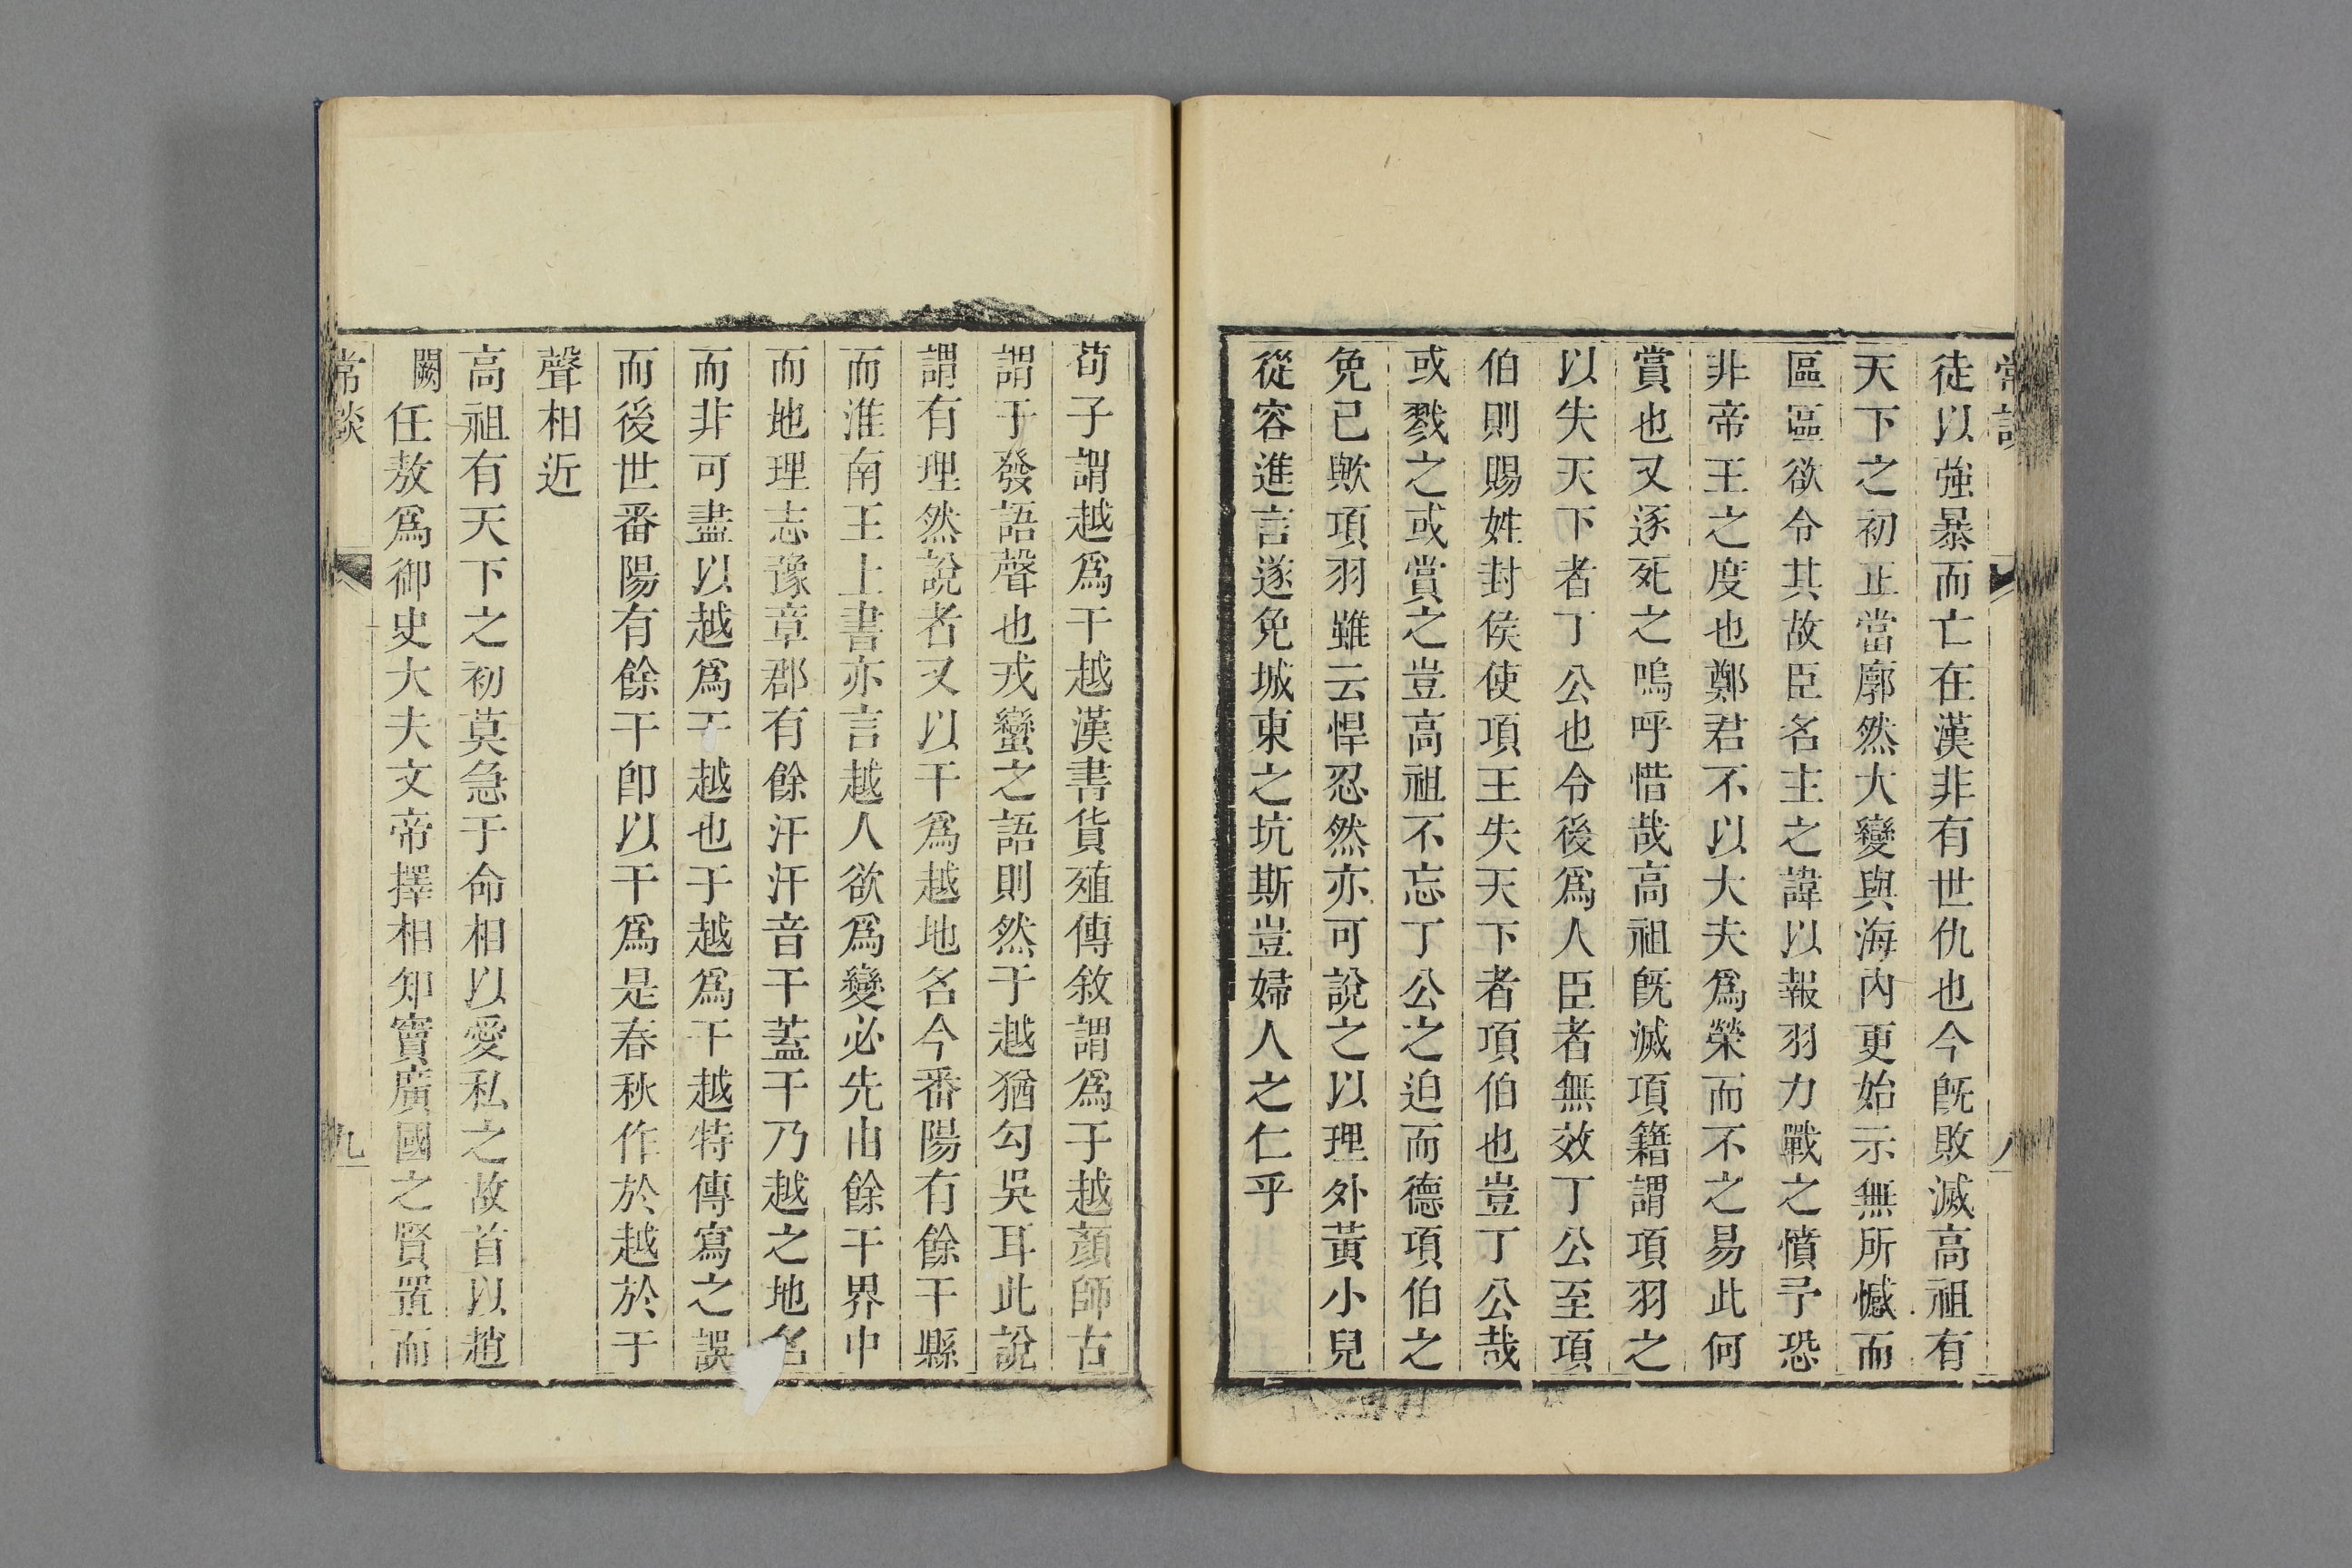 徒以強暴而亡在漢非有世仇也今旣敗滅高祖有
天下之初正當廓然大變與海內更始示無所憾而
區區欲令其故臣名主之諱以報羽力戰之憤予恐
非帝王之度也鄭君不以大夫爲榮而不之易此何
賞也又逐死之嗚呼惜哉高祖旣滅項籍謂項羽之
以失天下者丁公也令後爲人臣者無效丁公至項
伯則賜姓封侯使項王失天下者項伯也豈丁公哉
或戮之或賞之豈高祖不忘丁公之迫而德項伯之
免己歟項羽雖云悍忍然亦可說之以理外黃小兒
從容進言遂免城東之坑斯豈婦人之仁乎
荀子謂越爲干越漢書貨殖傳敘謂爲于越顏師古
謂于發語聲也戎蠻之語則然于越猶勾吳耳此說
謂有理然說者又以干爲越地名今番陽有餘干縣
而淮南王上書亦言越人欲爲變必先由餘干界中
而地理志豫章郡有餘汗汗音干蓋干乃越之地名
而非可盡以越爲干越也于越爲干越特傳寫之誤
而後世番陽有餘干卽以干爲是春秋作於越於于
聲相近
高祖有天下之初莫急于命相以愛私之故首以趙
闕任敖爲御史大夫文帝擇相知竇廣國之賢置而
常談
九